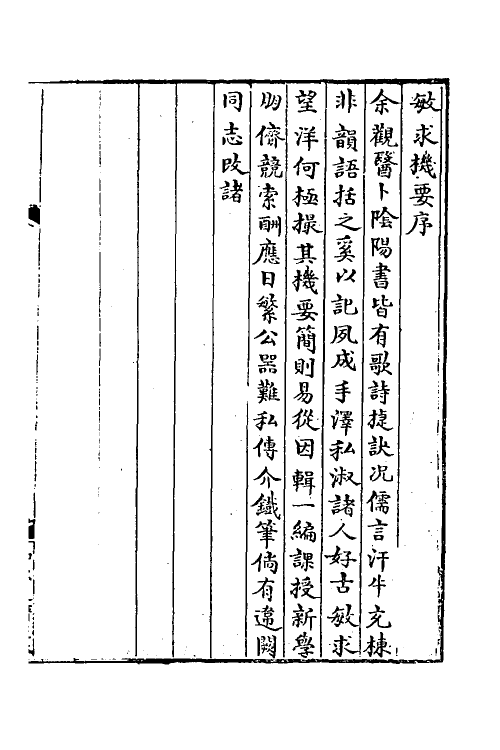 敏求機要序
余觀醫卜陰陽書皆有歌詩捷訣况儒言汗牛充棟
非韻語括之奚以記夙成手澤私淑諸人好古敏求
望洋何極撮其機要簡則易從因輯一編課授新學
朋儕競索酬應日繁公器難私傳介鐵筆倘有遺闕
同志改諸